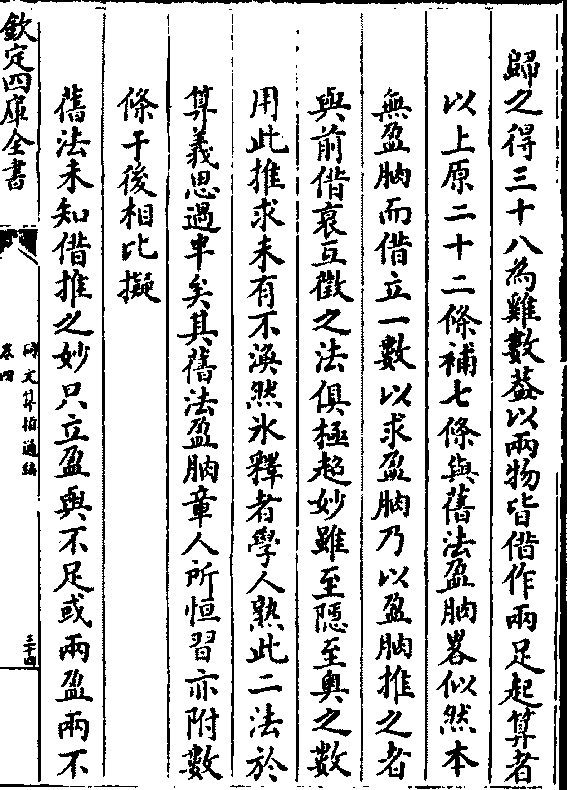 歸之得三十八為雞數葢以兩物皆借作兩足起算者
以上原二十二條補七條與舊法盈朒畧似然本
無盈朒而借立一數以求盈朒乃以盈朒推之者
與前借衰互徵之法俱極超妙雖至隱至奥之數
用此推求未有不渙然氷釋者學人熟此二法於
算義思過半矣其舊法盈朒章人所恒習亦附數
條于後相比擬
舊法未知借推之妙只立盈與不足或兩盈兩不
欽定四庫全書
同文算指通編
卷四
三十四